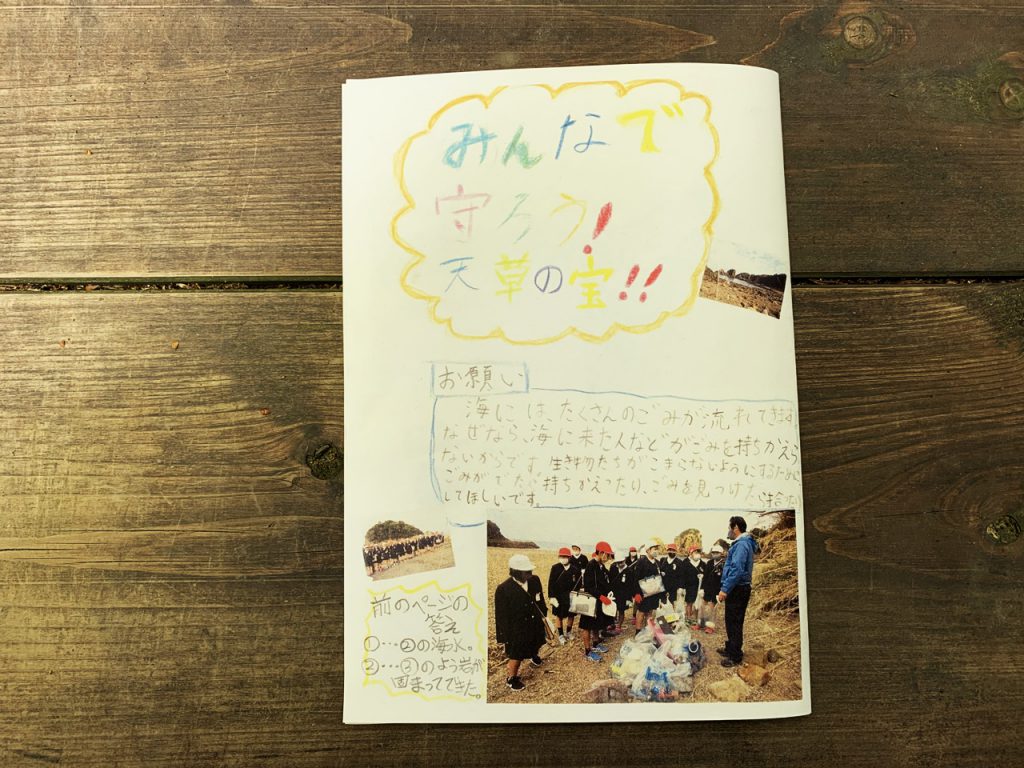 みんなで
守ろう!
天草の宝!!
お願い
海には、たくさんのごみが流れてきます
なぜなら、海に来た人などがごみを持ちかえら
ないからです。生き物たちがこまらないようにするために
ごみがでたら持ちかえったり、ごみを見つけたら拾ったり
してほしいです。
前のページの
答え
①…②の海水。
②…③のよう岩が
固まってできた。